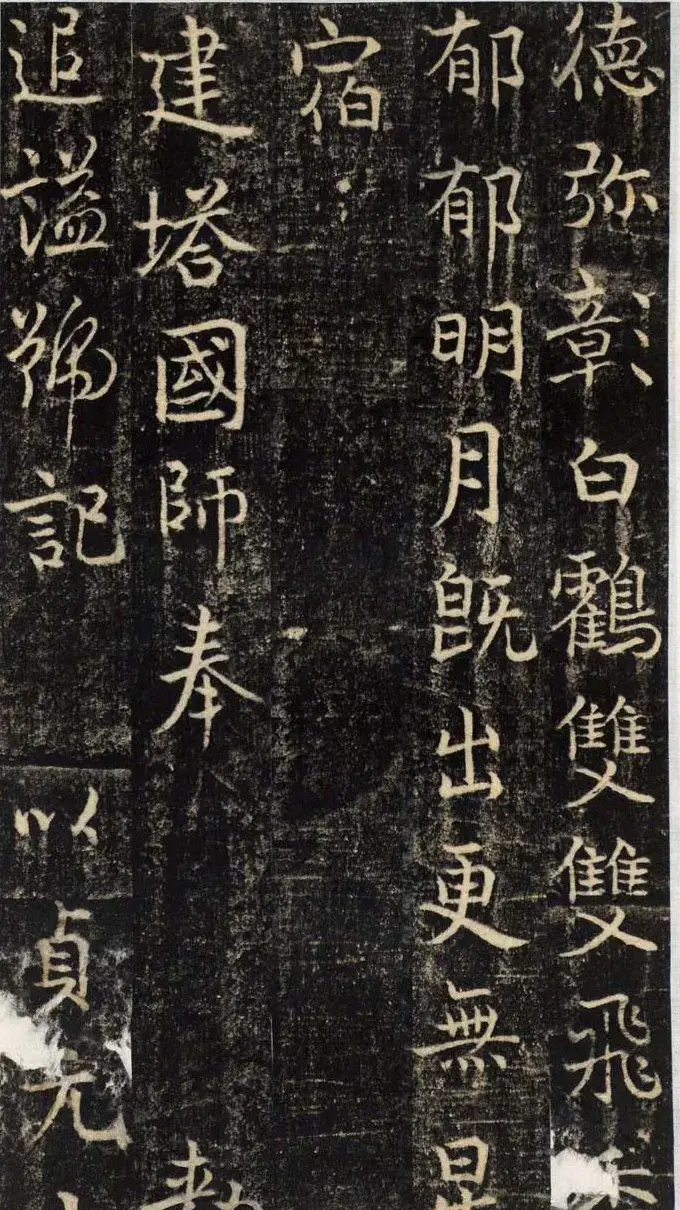 德弥彰白鸖雙雙飛香
郁郁明月既出更無星
宿
建塔國師奉 勅
追謚號記 以貞元十